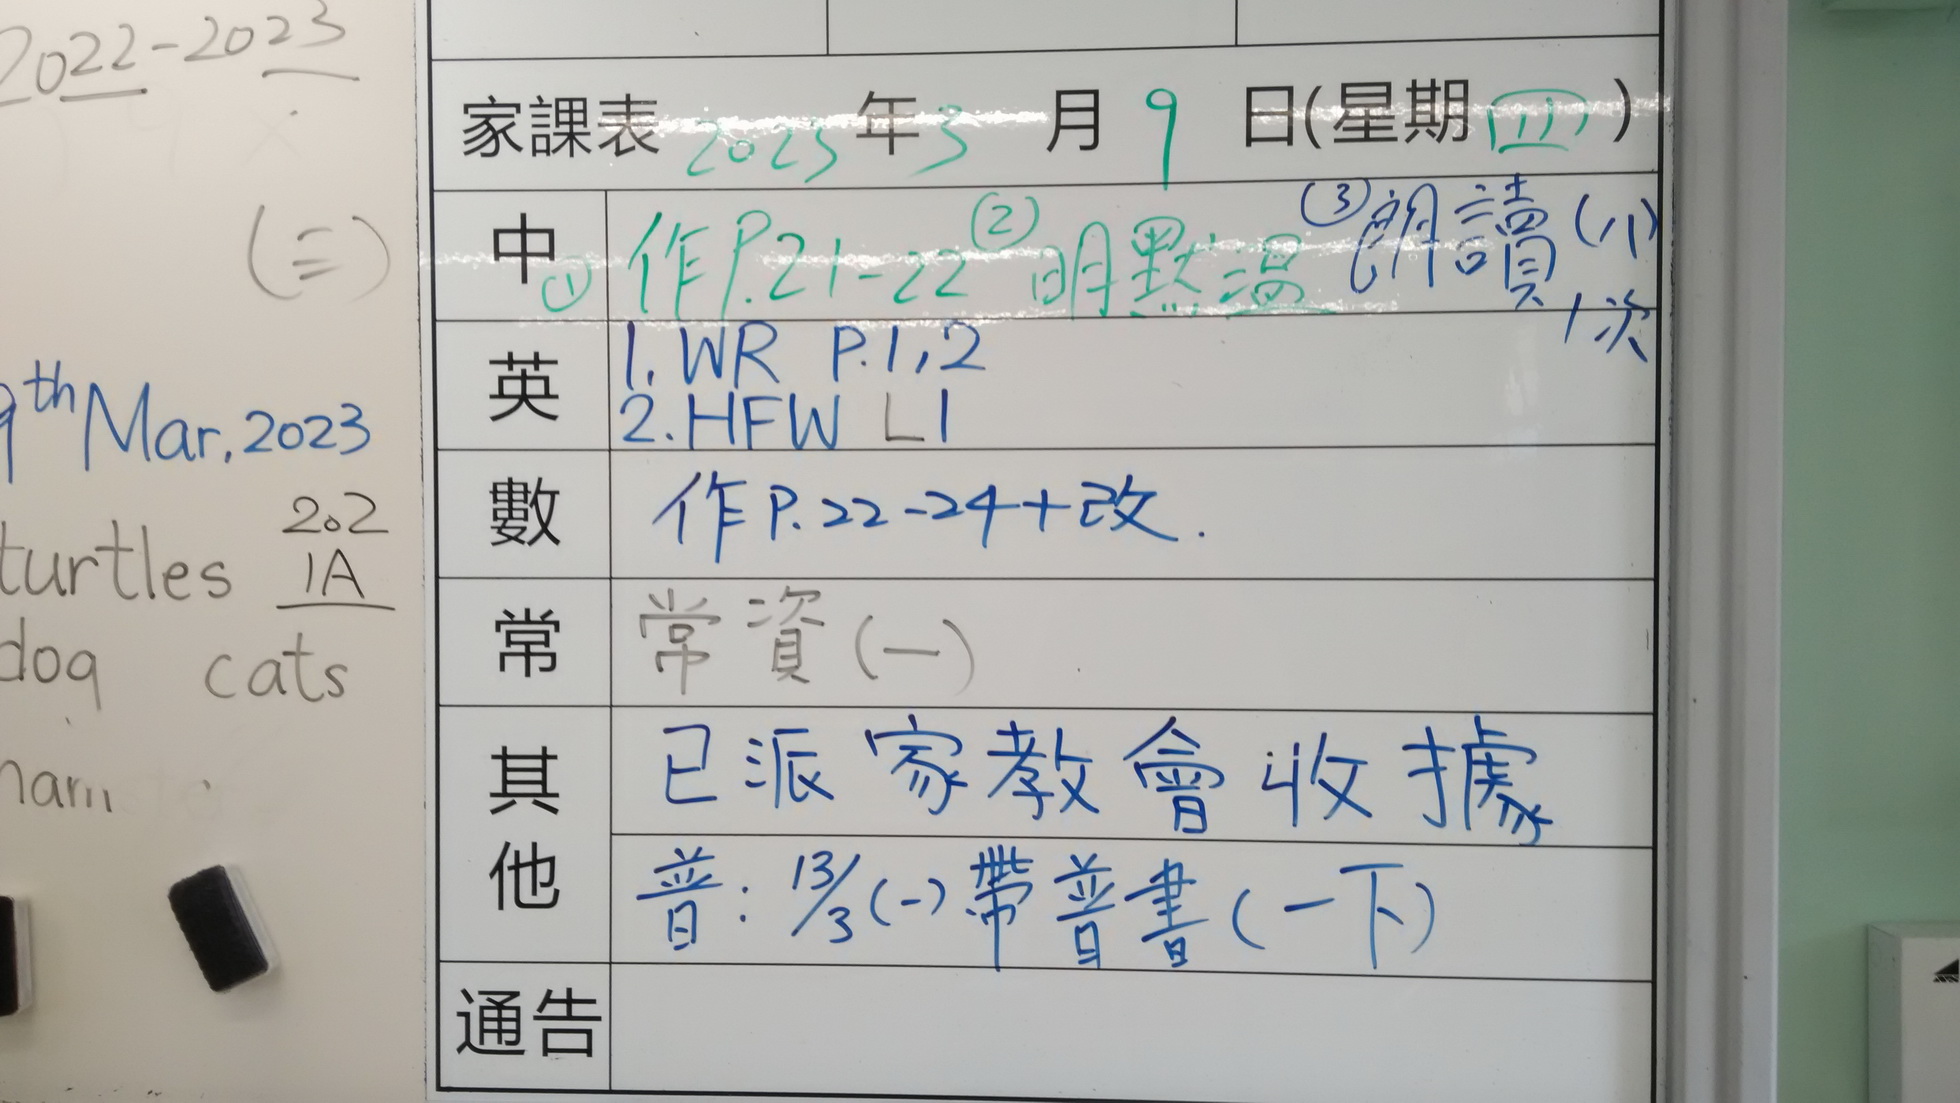 2022-2023
(三)
9th Mar. 2023
turtles 202
1A
dog cats
家課表 2023 年 3 月 9 日(星期四)
中 ① 作P.21-22 ② 明默溫 ③ 朗讀(小)
1次
英 1. WR P.1,2
2. HFW L1
數 作P.22-24+改.
常 常資(一)
其他 已派家教會收據
普: 13/3(一)帶普書(一下)
通告